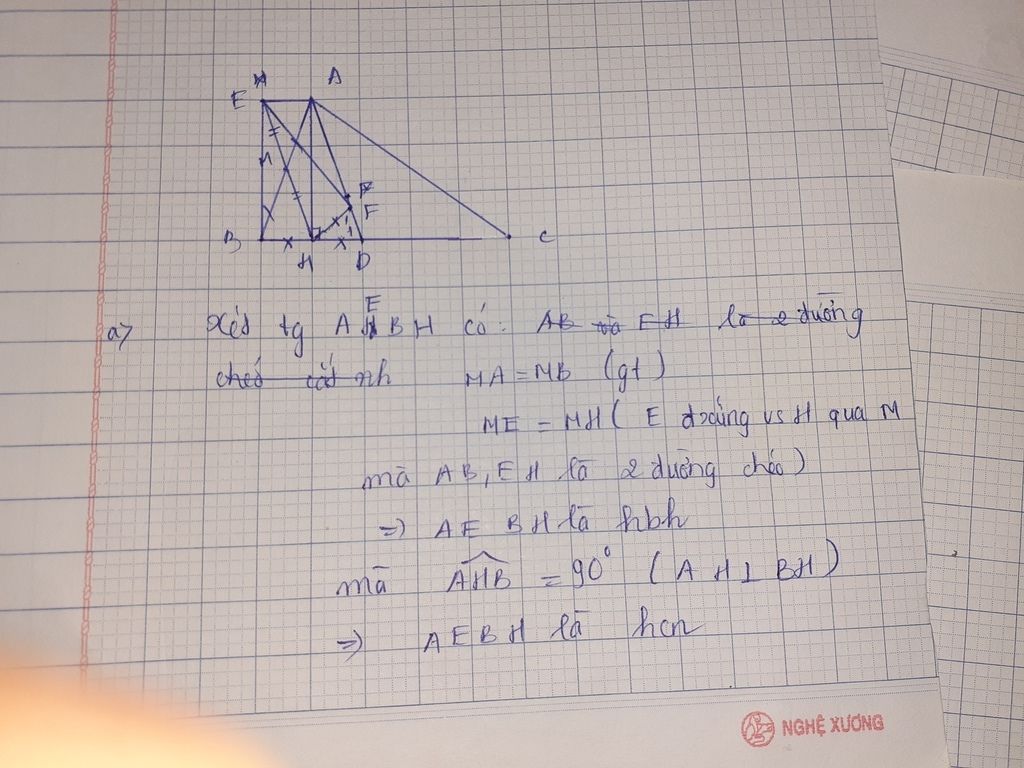 A
E
M
F
B
H
D
C
a) Xét tg AEBH có: AB và EH là 2 đường
chéo cắt nh MA = MB (gt)
ME = MH ( E đxứng vs H qua M
mà AB, EH là 2 đường chéo)
=> AE BH là hbh
mà AHB = 90° ( AH ⊥ BH )
=> AEBH là hcn
NGHỆ XƯƠNG